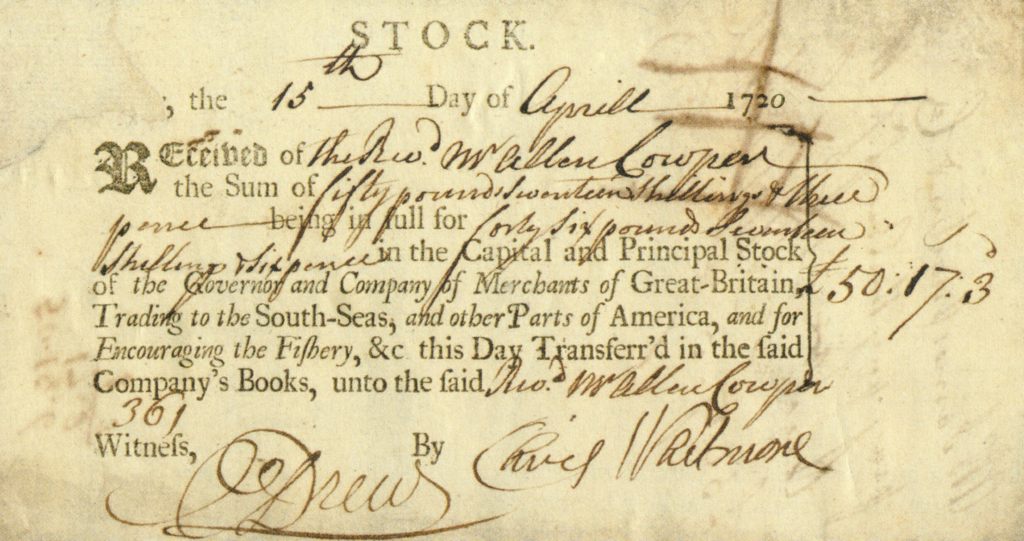 STOCK.
, the 15th Day of Aprill 1720
Received of the Revd. Mr Allen Cowper
the Sum of fifty pounds Seventeen Shillings & three
pence being in full for forty Six pounds Seventeen
Shillings & Six pence in the Capital and Principal Stock
of the Governor and Company of Merchants of Great-Britain, £50:17:3d
Trading to the South-Seas, and other Parts of America, and for
Encouraging the Fiſhery, &c this Day Transferr'd in the ſaid
Company's Books, unto the ſaid Revd. Mr Allen Cowper
361
Witneſs, Drew By Whitmore